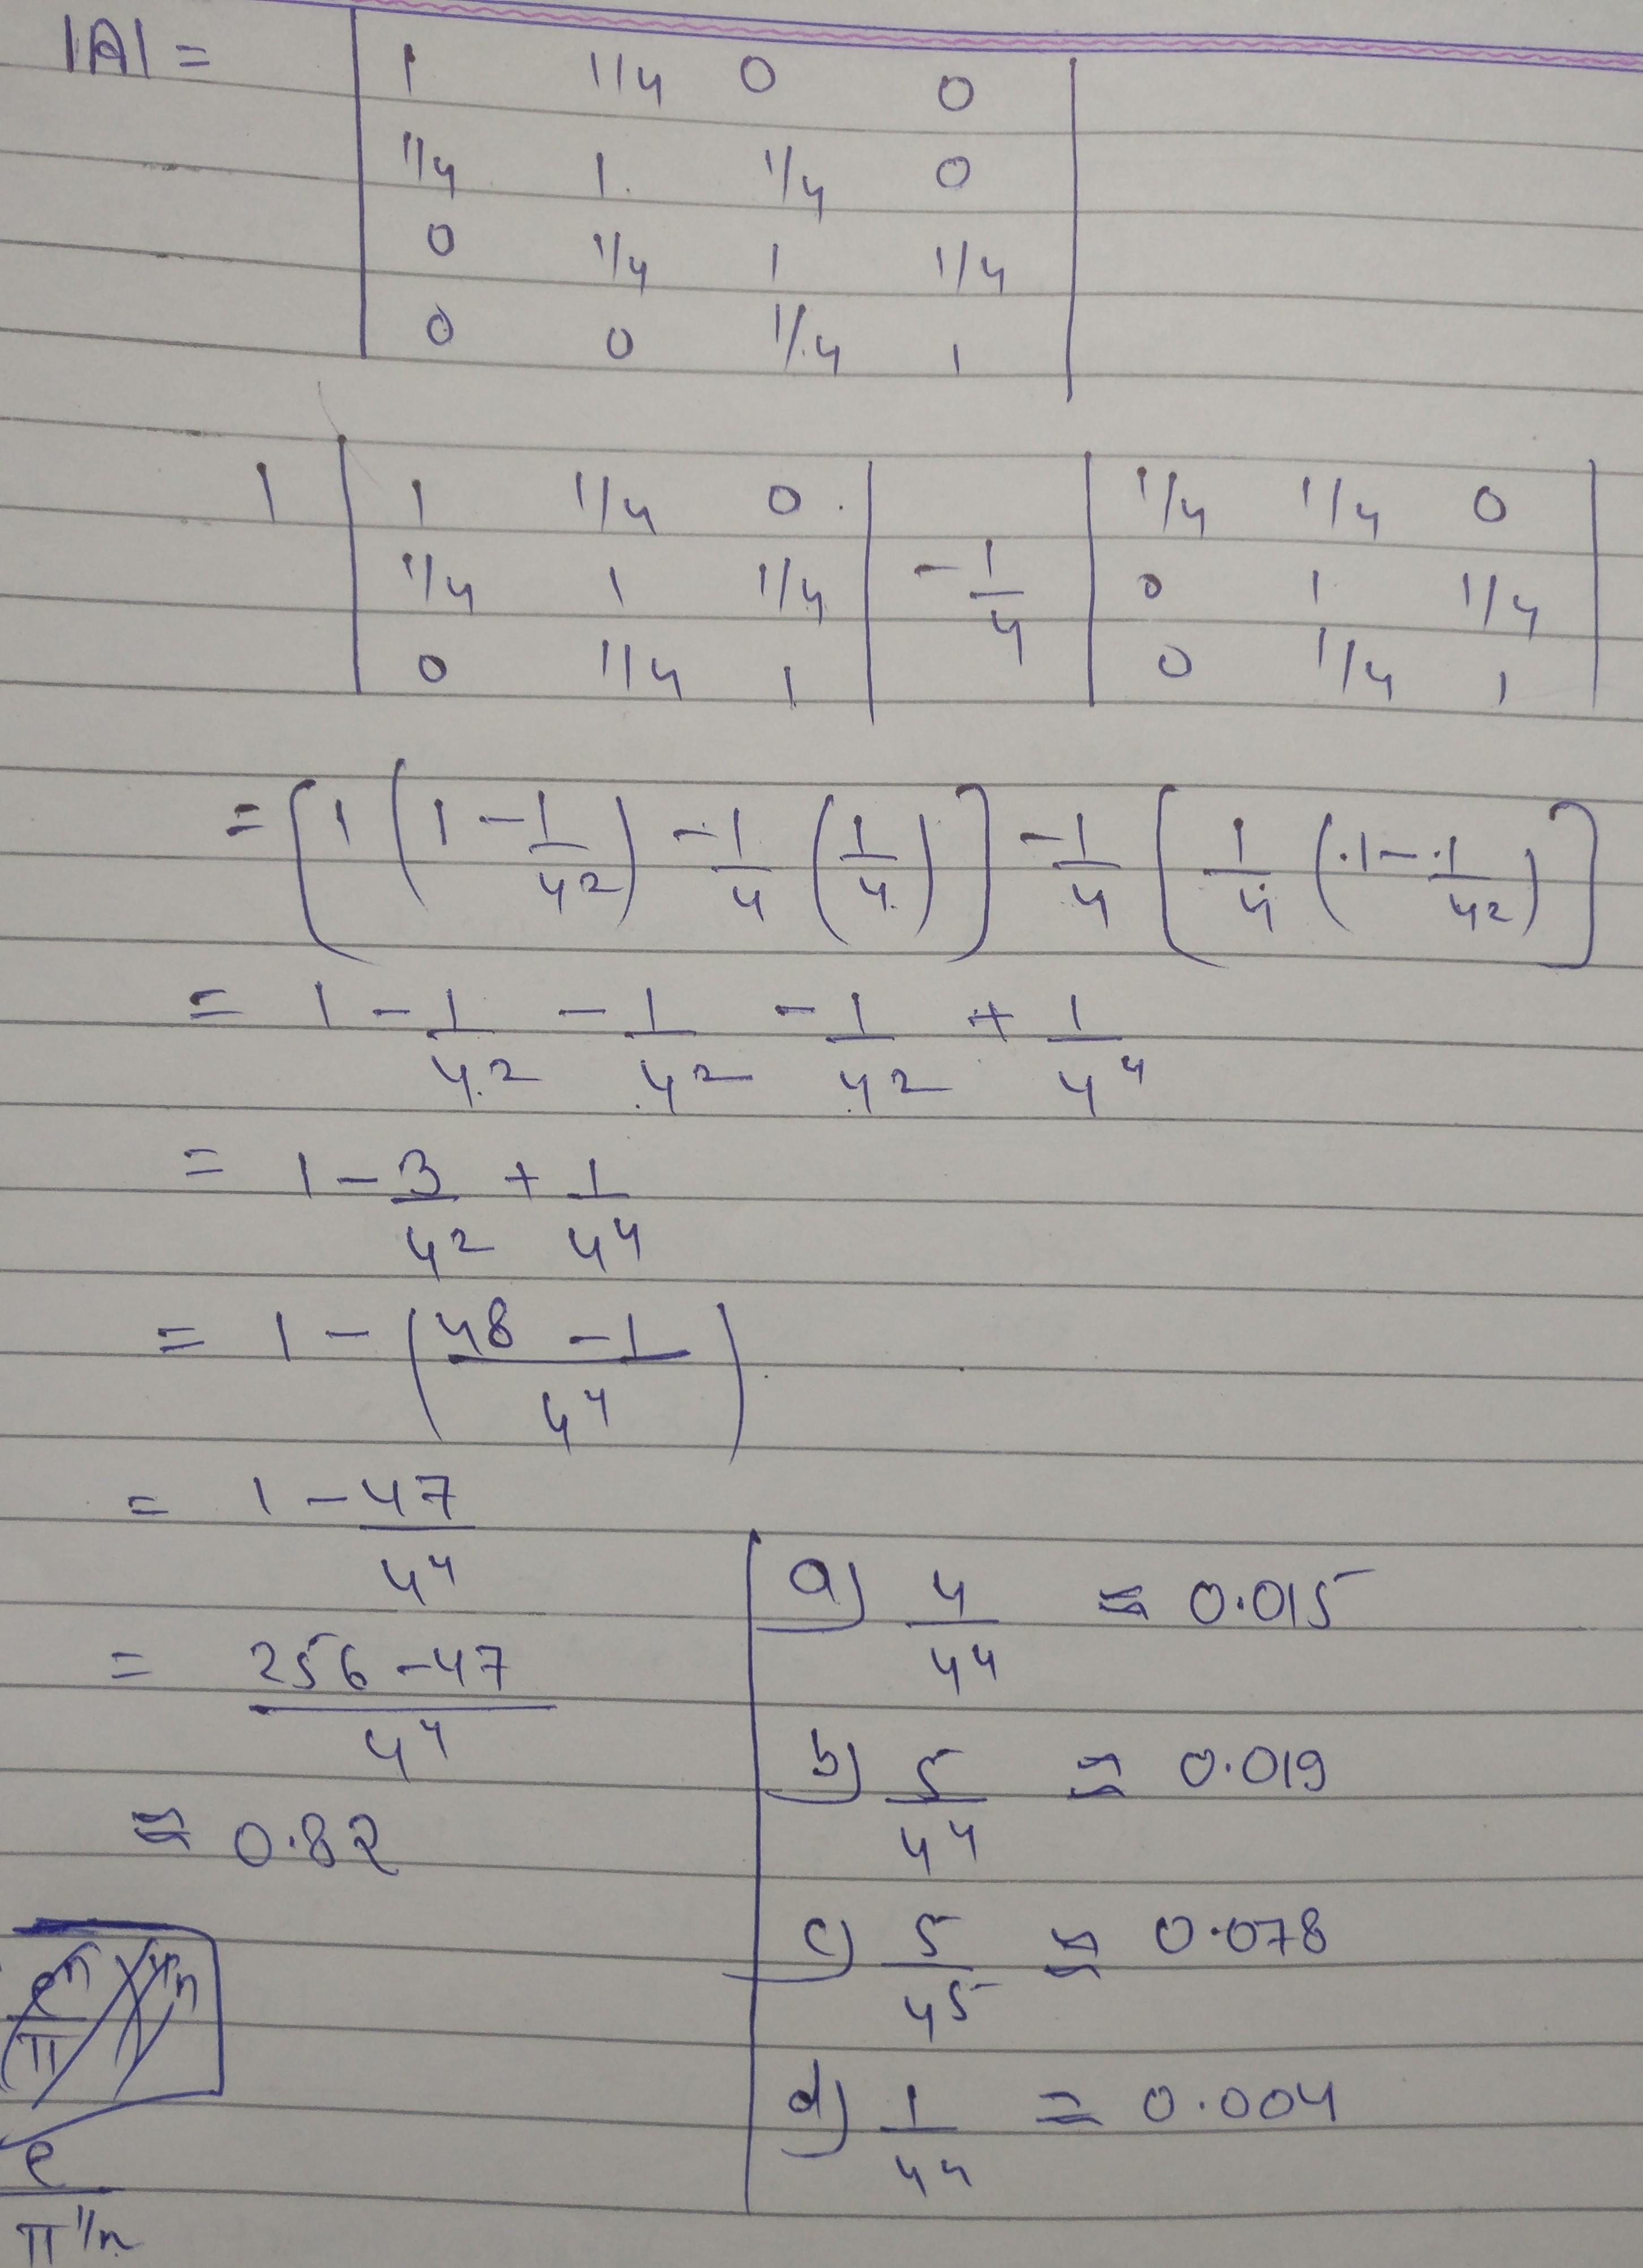 |A| = | 1 1/4 0 0 |
| 1/4 1 1/4 0 |
| 0 1/4 1 1/4 |
| 0 0 1/4 1 |
1 | 1 1/4 0 | - 1/4 | 1/4 1/4 0 |
| 1/4 1 1/4 | | 0 1 1/4 |
| 0 1/4 1 | | 0 1/4 1 |
= [ 1 ( 1 - 1/4² ) - 1/4 ( 1/4 ) ] - 1/4 [ 1/4 ( 1 - 1/4² ) ]
= 1 - 1/4² - 1/4² - 1/4² + 1/4⁴
= 1 - 3/4² + 1/4⁴
= 1 - ( (48 - 1)/4⁴ )
= 1 - 47/4⁴
= (256 - 47)/4⁴
≈ 0.82
a) 4/4⁴ ≈ 0.015
b) 5/4⁴ ≈ 0.019
c) 5/4⁵ ≈ 0.078
d) 1/4⁴ ≈ 0.004
e/π^1/n